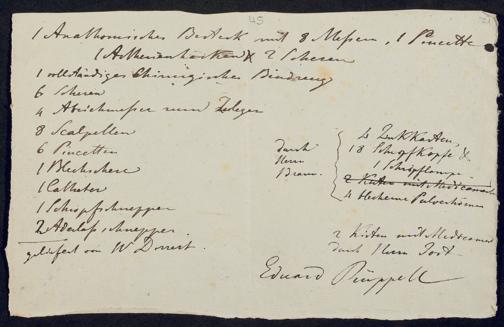 45
1 Anathomisches Besteck mit 8 Messern, 1 Pincette
1 Artherienhacken & 2 Scheren
1 vollständiges Chirurgisches Bindzeug
6 Scheren
4 Abzichmesser zum
8 Scalpellen
6 Pincetten
1 Blechschere
1 Catheter
1 Schropfschnepper
2 Aderlasschnepper
geliefert von W
durch
Herrn
4 Zinkkasten,
18 Schropfkopfe &
1 Schropflampe
2 Kisten mit Medicament
4 blecherne Pulverhörner
2 Kisten mit Medicament
durch Herrn Jost
Eduard Rüppell